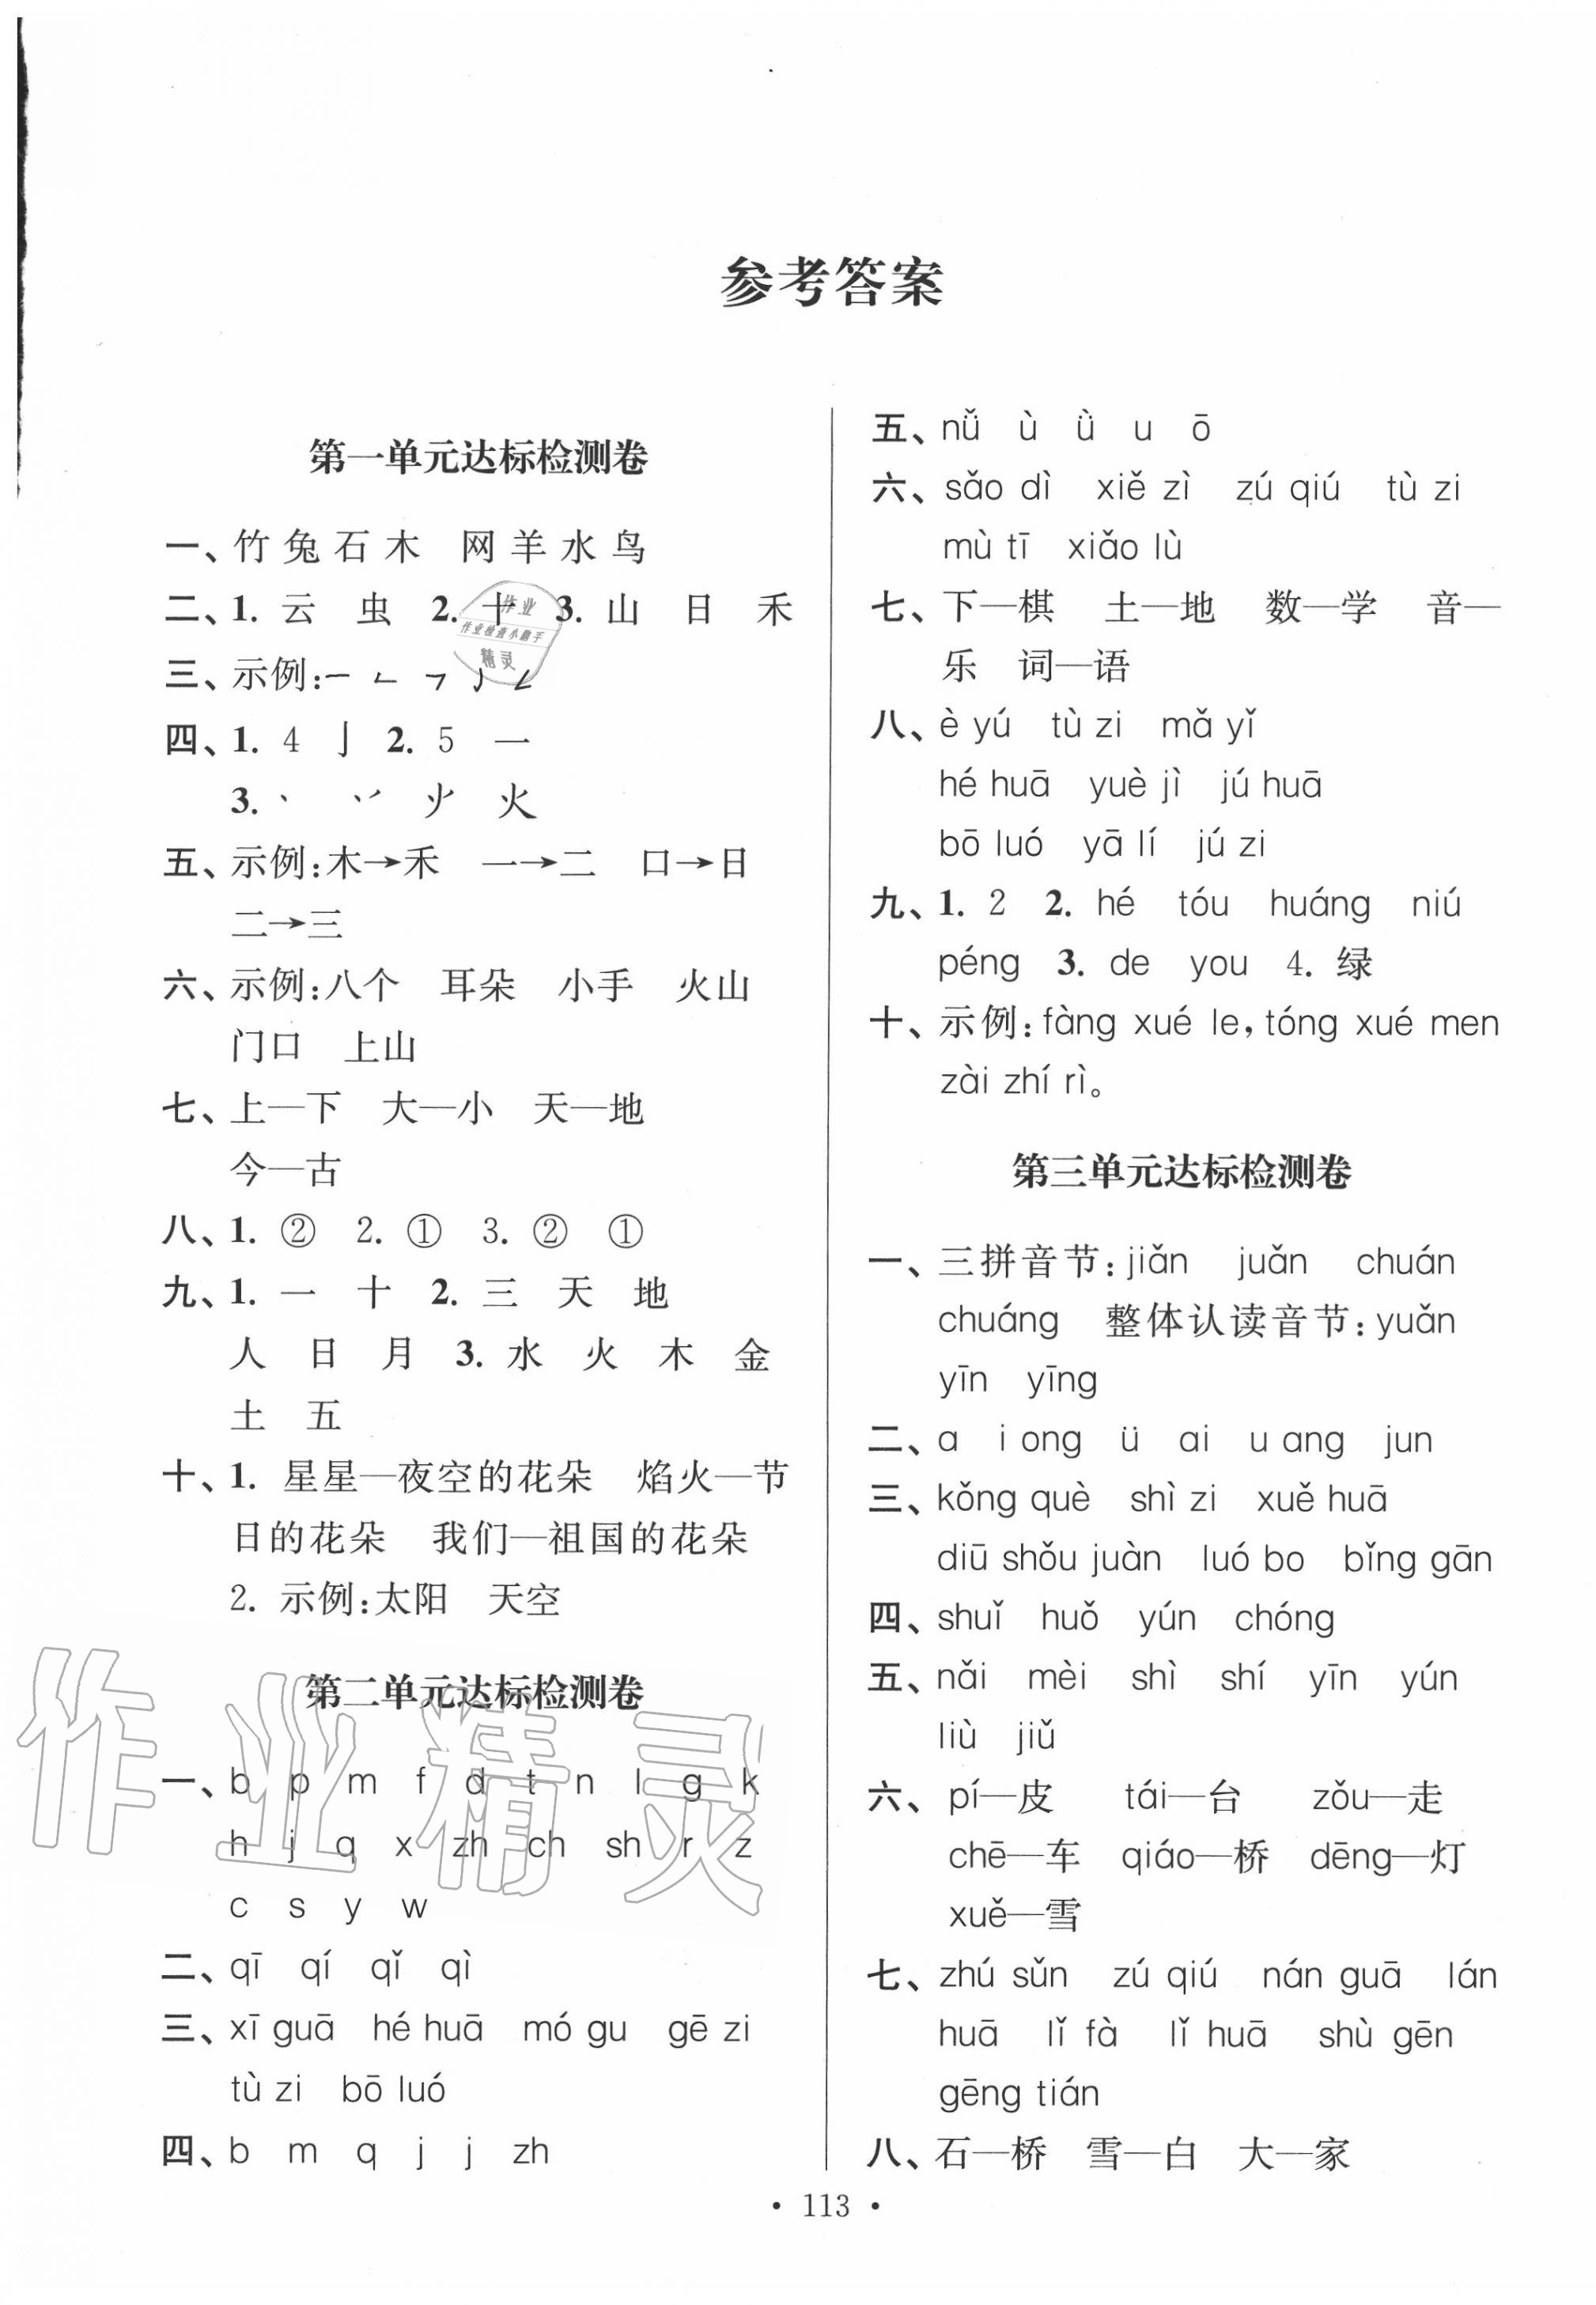 参考答案
第一单元达标检测卷
一、竹 兔 石 木 网 羊 水 鸟
二、1. 云 虫 2. 十 3. 山 日 禾
三、示例:
四、1. 4 亅 2. 5 一
3. 丶 丷 火
五、示例:木→禾 一→二 口→日
二→三
六、示例:八个 耳朵 小手 火山
门口 上山
七、上—下 大—小 天—地
今—古
八、1. ② 2. ① 3. ② ①
九、1. 一 十 2. 三 天 地
人 日 月 3. 水 火 木 金
土 五
十、1. 星星—夜空的花朵 焰火—节
日的花朵 我们—祖国的花朵
2. 示例:太阳 天空
第二单元达标检测卷
一、b p m f d t n l g k
h j q x zh ch sh r z
c s y w
二、qī qí qǐ qì
三、xī guā hé huā mó gu gē zi
tù zi bō luó
四、b m q j j zh
五、nǚ ù ǜ u ō
六、sǎo dì xiě zì zú qiú tù zi
mù tī xiǎo lù
七、下—棋 土—地 数—学 音—
乐 词—语
八、è yú tù zi mǎ yǐ
hé huā yuè jì jú huā
bō luó yā lí jú zi
九、1. 2 2. hé tóu huáng niú
péng 3. de you 4. 绿
十、示例:fàng xué le, tóng xué men
zài zhí rì。
第三单元达标检测卷
一、三拼音节:jiǎn juǎn chuán
chuáng 整体认读音节:yuǎn
yīn yīng
二、a i ong ü ai u ang jun
三、kǒng què shì zi xuě huā
diū shǒu juàn luó bo bǐng gān
四、shuǐ huǒ yún chóng
五、nǎi mèi shì shí yīn yún
liù jiǔ
六、pí—皮 tái—台 zǒu—走
chē—车 qiáo—桥 dēng—灯
xuě—雪
七、zhú sǔn zú qiú nán guā lán
huā lǐ fà lǐ huā shù gēn
gēng tián
八、石—桥 雪—白 大—家
• 113 •
作业
作业检查小助手
精灵
作业精灵